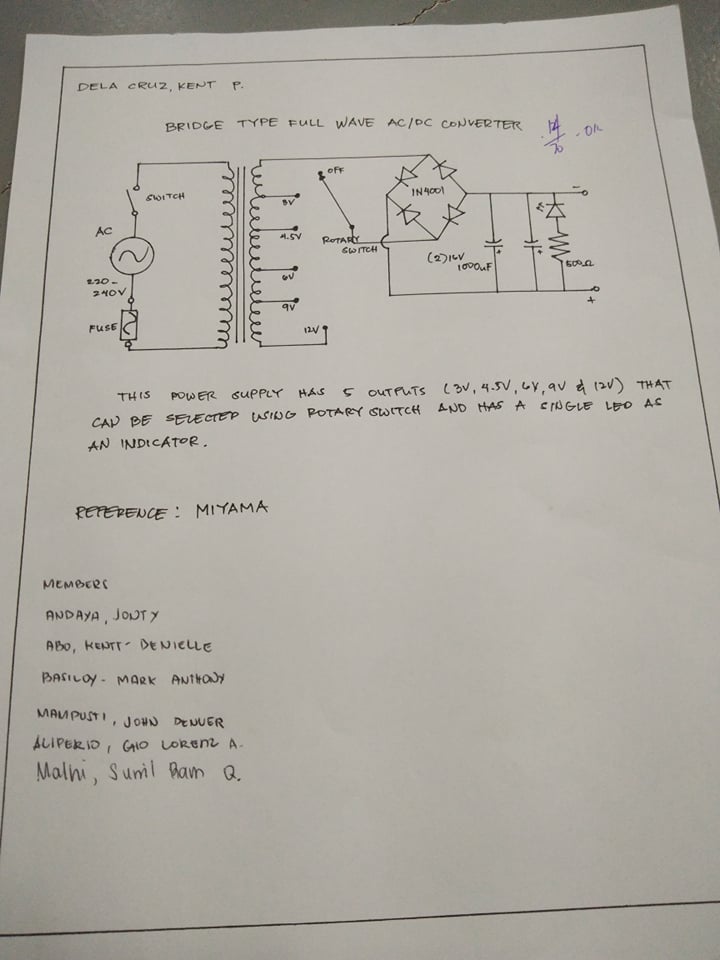 DELA CRUZ, KENT P.
BRIDGE TYPE FULL WAVE AC/DC CONVERTER
. OK
SWITCH
AC
220-
240V
FUSE
3V
4.5V
6V
9V
12V
OFF
ROTARY
SWITCH
1N4001
(2)16V
1000uF
500Ω
-
+
THIS POWER SUPPLY HAS 5 OUTPUTS (3V, 4.5V, 6V, 9V & 12V) THAT
CAN BE SELECTED USING ROTARY SWITCH AND HAS A SINGLE LED AS
AN INDICATOR.
REFERENCE: MIYAMA
MEMBERS
ANDAYA, JONTY
ABO, KENTT- DENIELLE
BASILOY- MARK ANTHONY
MAMPUSTI, JOHN DENVER
ALIPERIO, GIO LORENZ A.
Malhi, Sunil Ram Q.